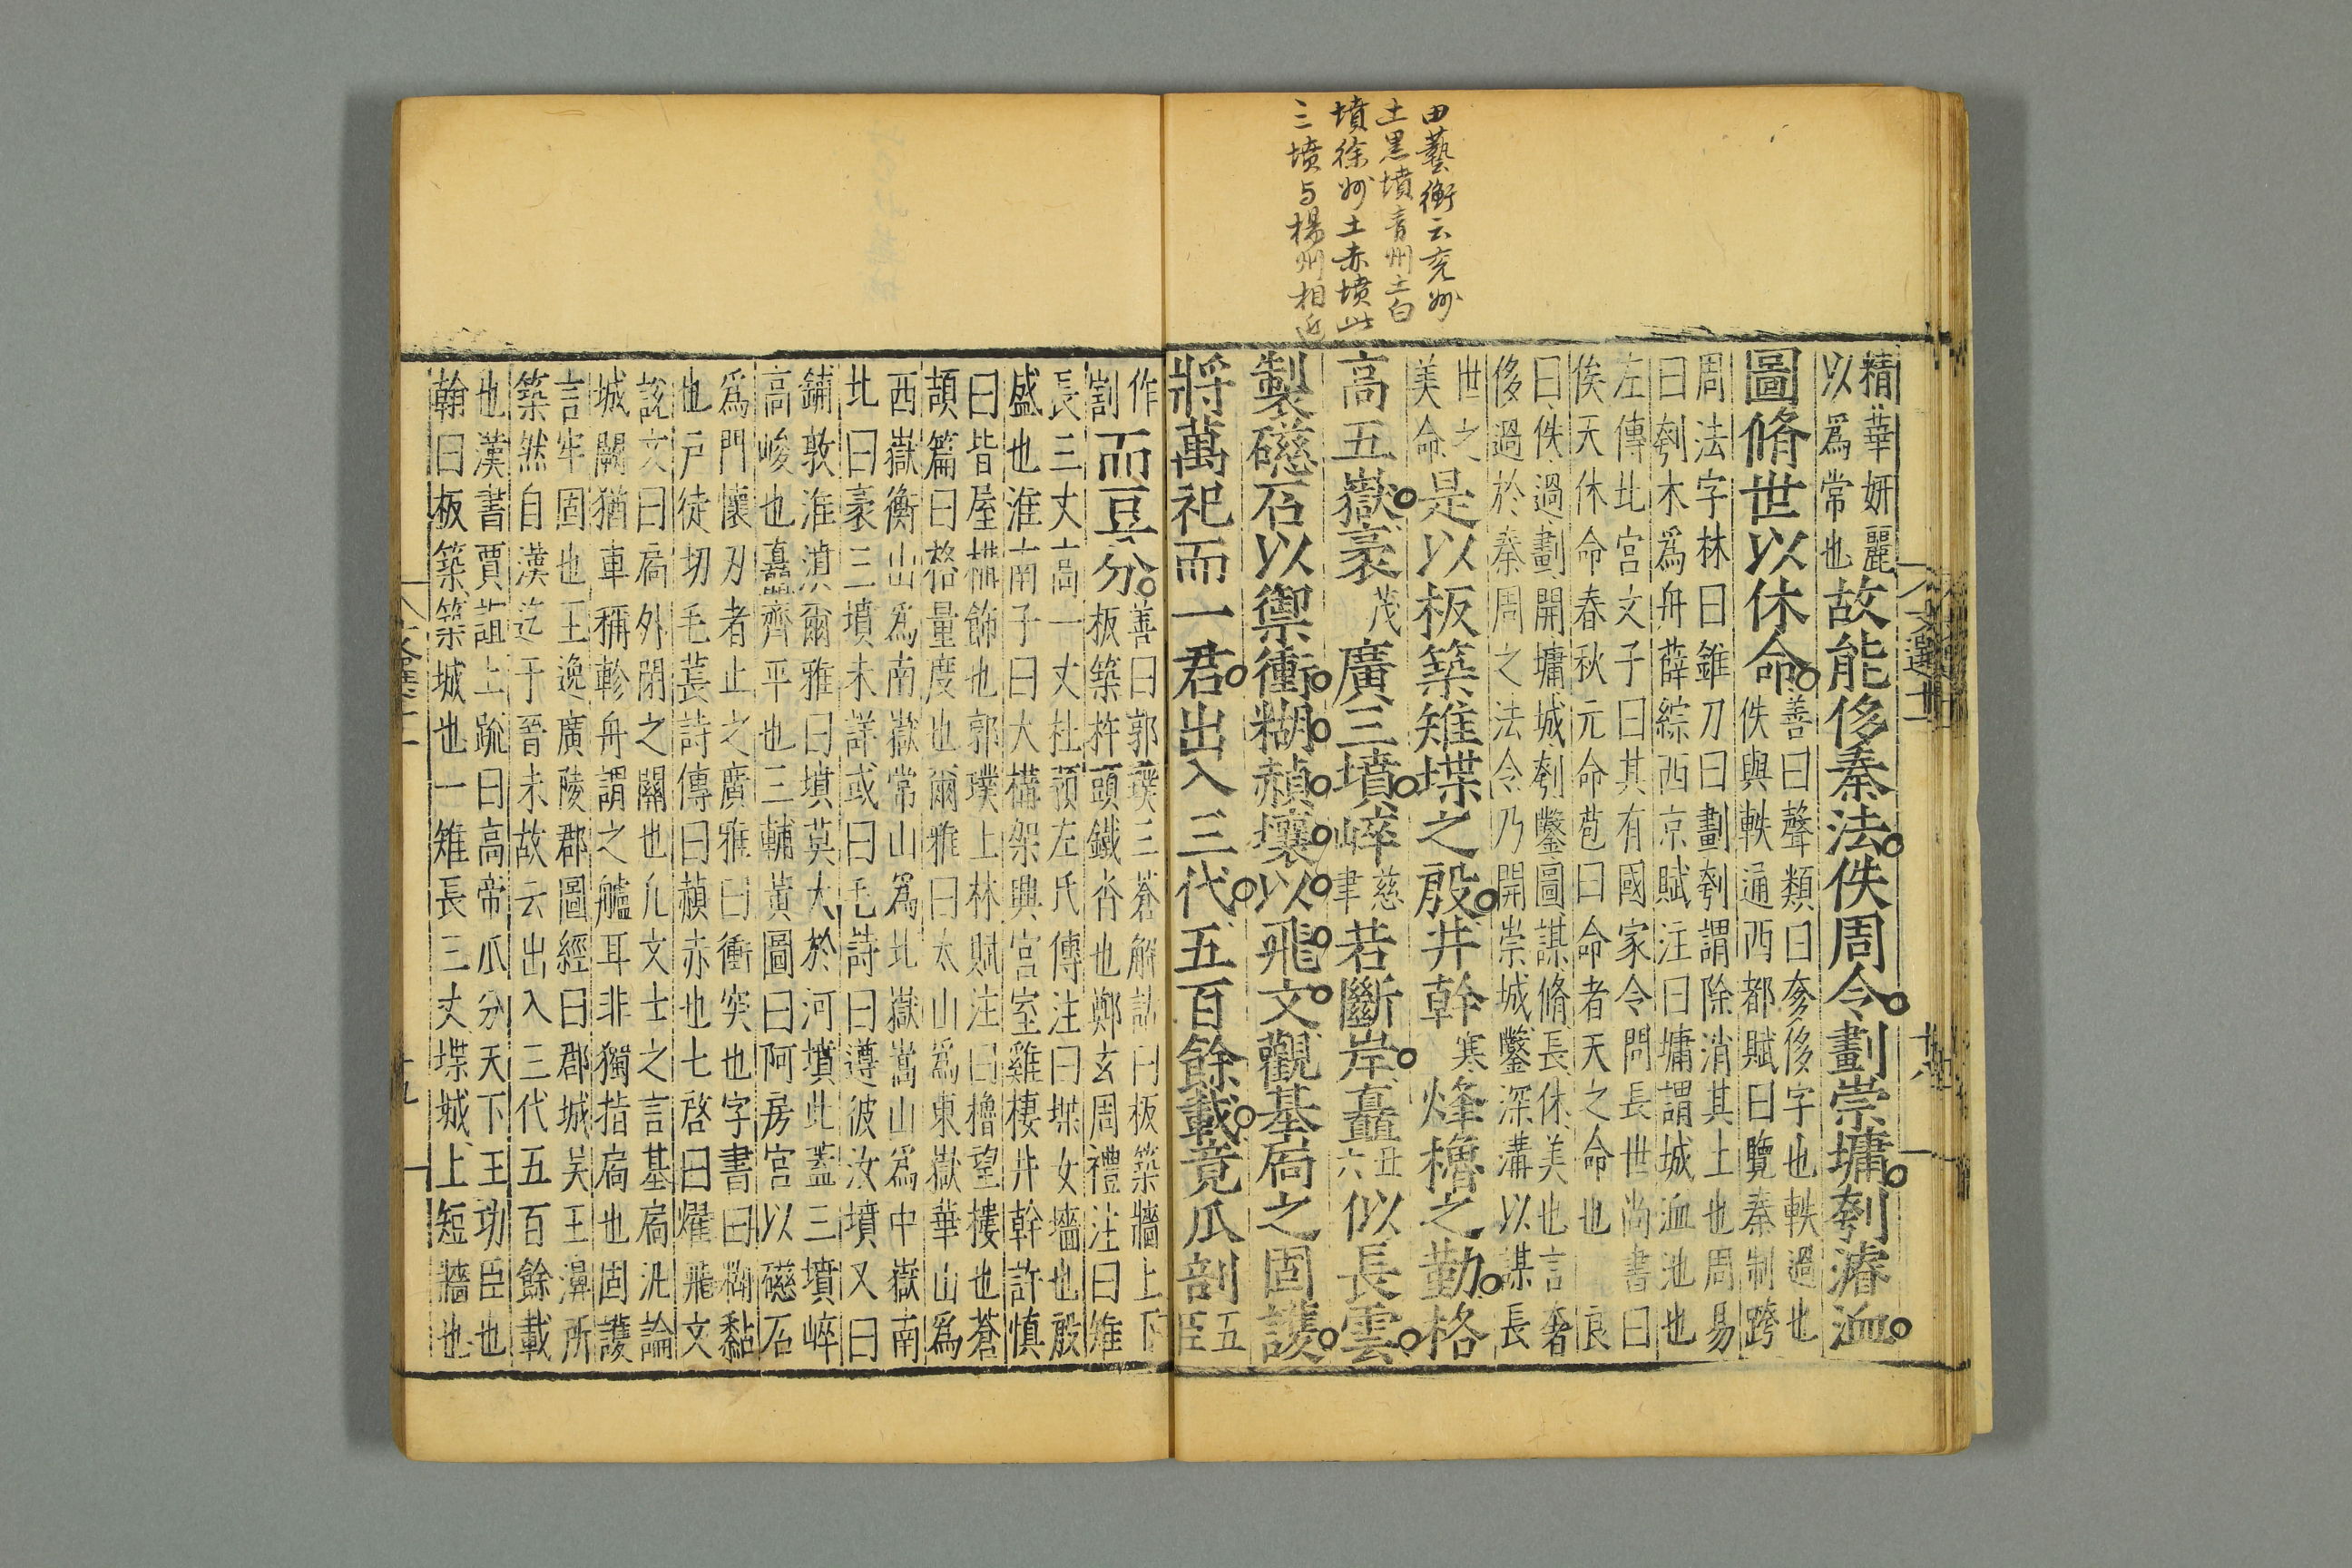 田藝衡云兖州
土黒墳青州土白
墳徐州土赤墳此
三墳与楊州相近
文選十一
十八
精華妍麗
以爲常也
故能侈秦法佚周令劃崇墉刳濬洫
圖脩世以休命
善曰聲類曰奓侈字也軼過也
佚與軼通西都賦曰覽秦制跨
周法字林曰錐刀曰劃刳謂除消其土也周易
曰刳木爲舟薛綜西京賦注曰墉謂城洫池也
左傳北宮文子曰其有國家令問長世尚書曰
俟天休命春秋元命苞曰命者天之命也良
曰佚過劃開墉城刳鑿圖謀脩長休美也言奢
侈過於秦周之法令乃開崇城鑿深溝以謀長
世之
美命
是以板築雉堞之殷井幹寒烽櫓之勤格
高五嶽袤茂廣三墳崒慈聿若斷岸矗丑六似長雲
製磁石以禦衝糊赬壤以飛文觀基扃之固護
將萬祀而一君出入三代五百餘載竟瓜剖五臣
作
割
而豆分
善曰郭璞三蒼解詁曰板築牆上下
板築杵頭鐵沓也鄭玄周禮注曰雉
長三丈高一丈杜預左氏傳注曰堞女墻也殷
盛也淮南子曰大構架興宮室雞棲井幹許慎
曰皆屋構飾也郭璞上林賦注曰櫓望樓也蒼
頡篇曰格量度也爾雅曰太山爲東嶽華山爲
西嶽衡山爲南嶽常山爲北嶽嵩山爲中嶽南
北曰袤三墳未詳或曰毛詩曰遵彼汝墳又曰
鋪敦淮濆爾雅曰墳莫大於河墳此蓋三墳崒
高峻也矗齊平也三輔黃圖曰阿房宮以磁石
爲門懷刃者止之廣雅曰衝突也字書曰糊黏
也戶徒切毛萇詩傳曰赬赤也七啓曰燿飛文
說文曰扃外閉之關也凡文士之言基扃汎論
城闕猶車稱軫舟謂之艫耳非獨指扃也固護
言牢固也王逸廣陵郡圖經曰郡城吳王濞所
築然自漢迄于晉末故云出入三代五百餘載
也漢書賈誼上疏曰高帝瓜分天下王功臣也
翰曰板築築城也一雉長三丈堞城上短牆也
十九